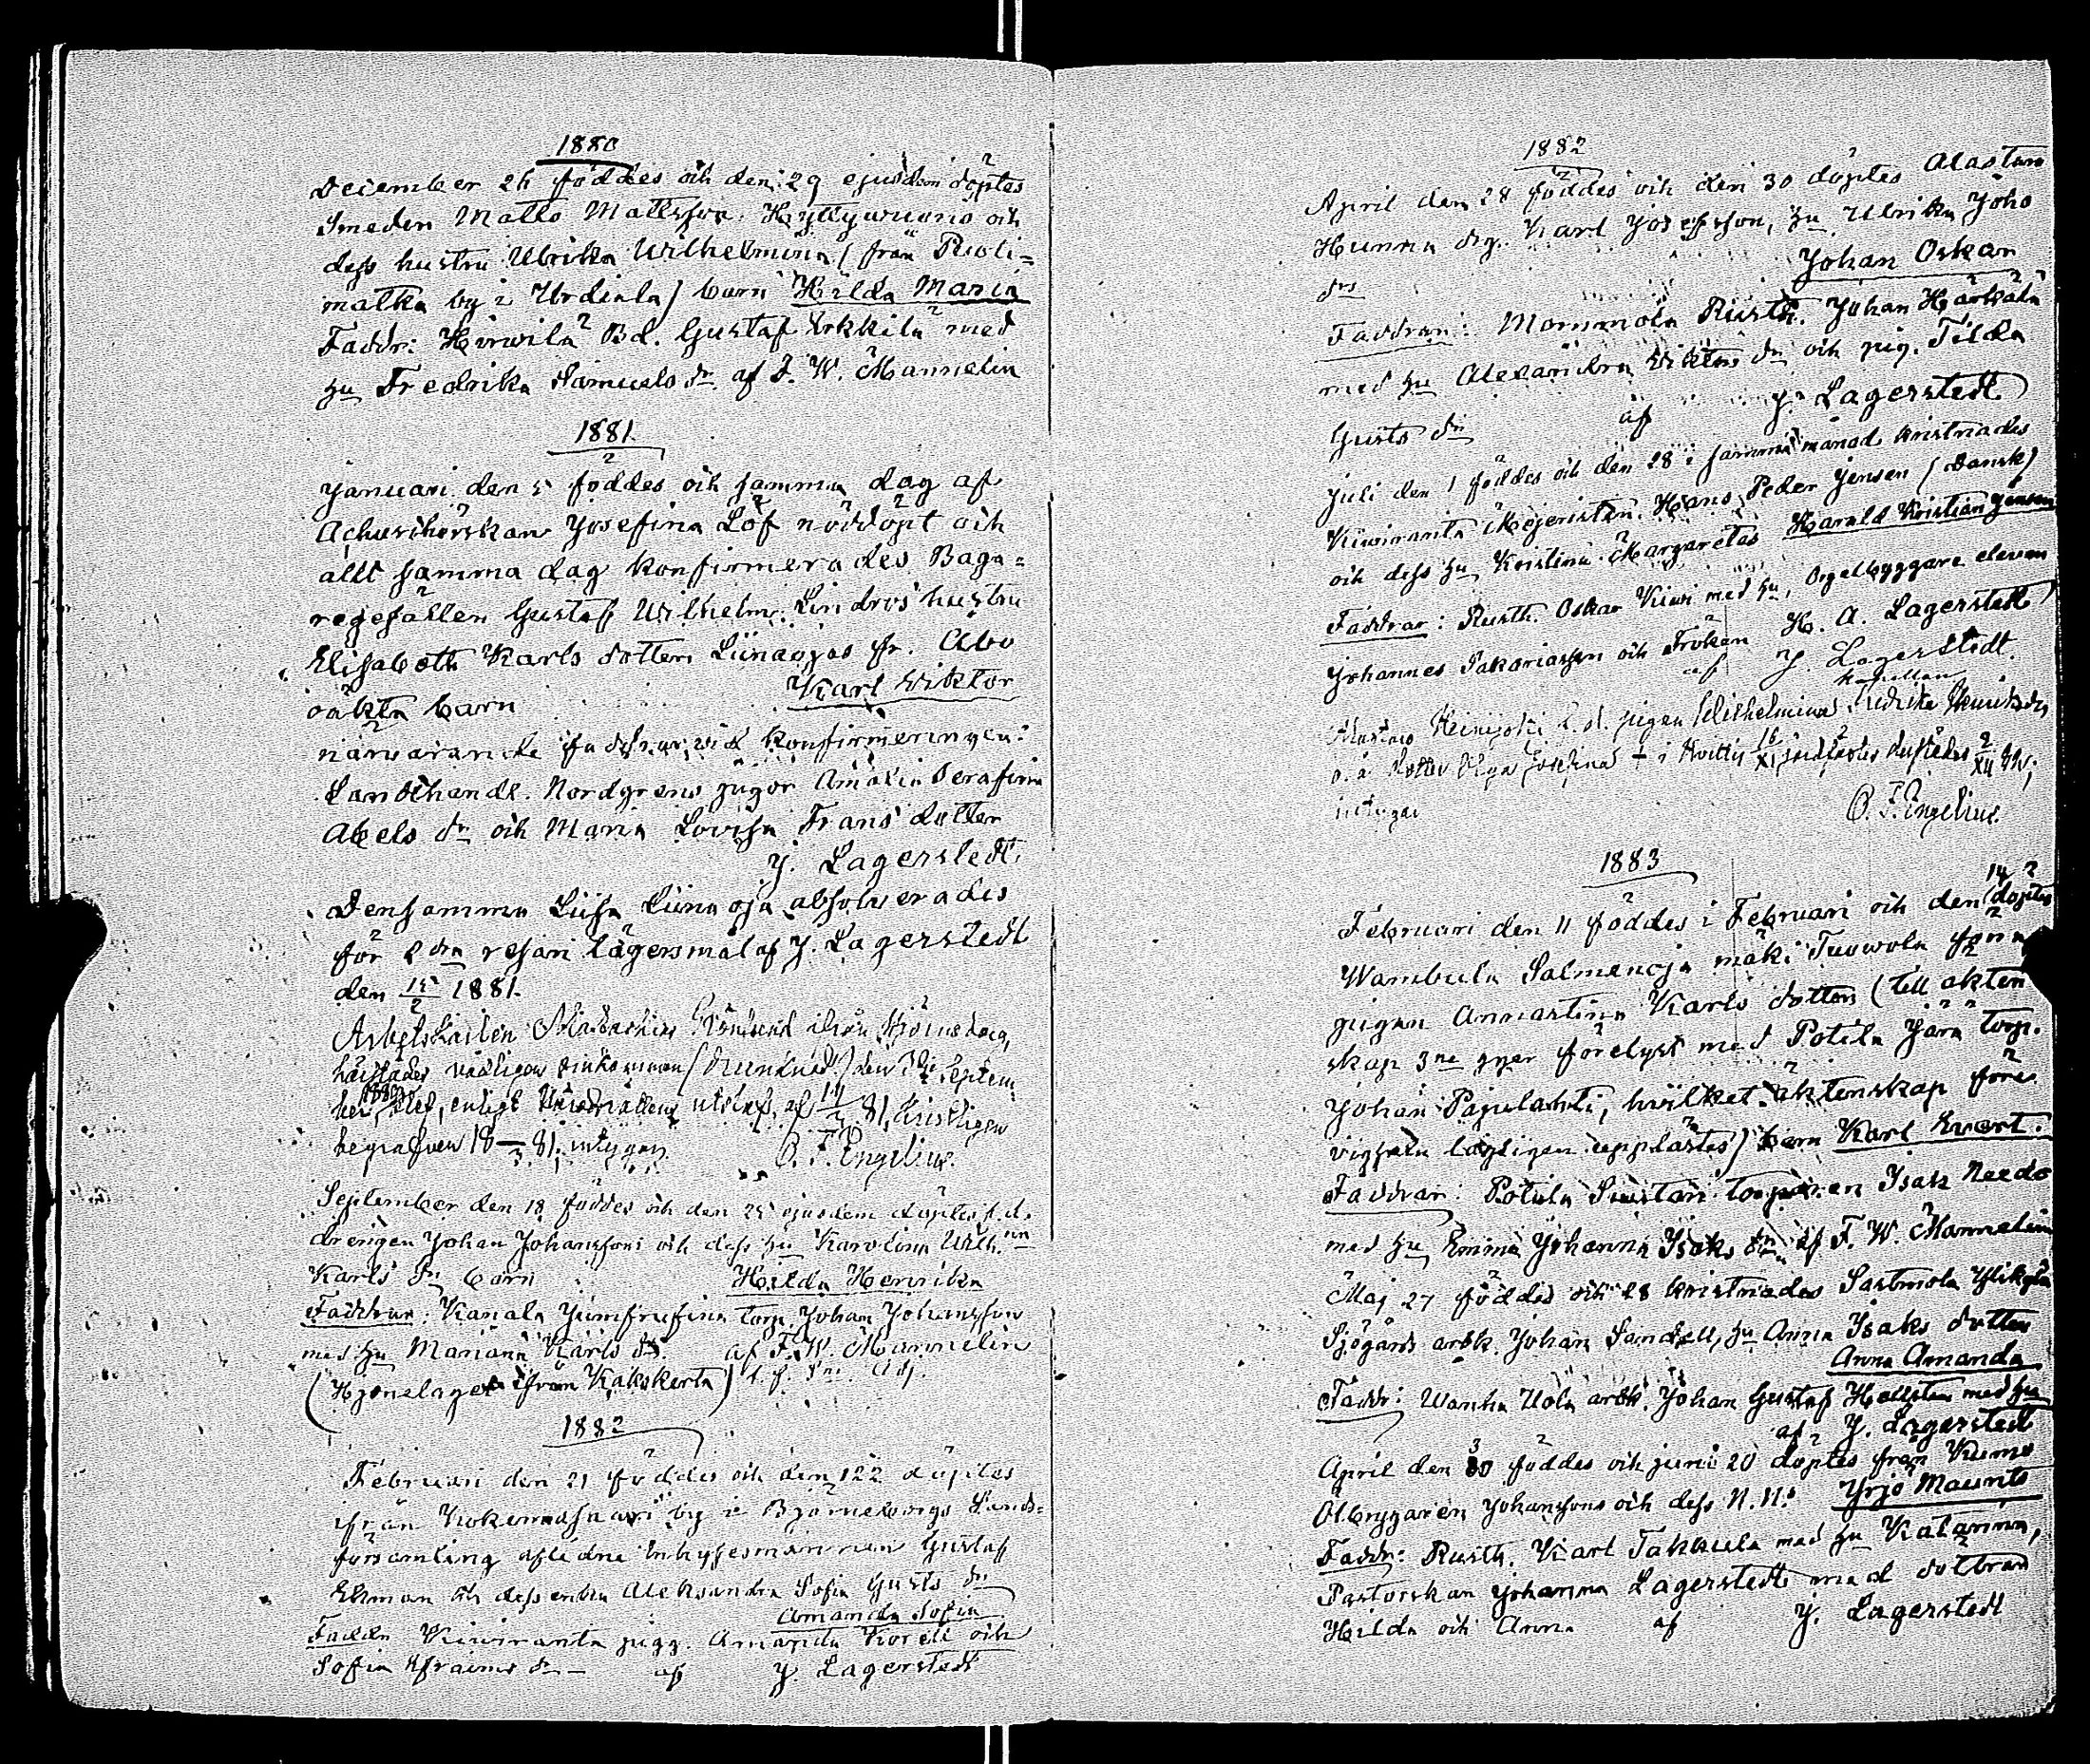 1880
December 24 föddes och den 29 ejusdem döptes
Smeden Matts Mattsson och
dess hustru Ulrika Wilhelmina (från Ruoti=
matka by i Urdiala) barn Hilda Maria
Faddr: Hirwilä Bd. Gustaf Erkkilä med
hu Fredrika Samuels dr. af F. W. Mannelin
1881
Januari den 5 föddes och samma dag af
Achuschörskan Josefina Löf nöddöpt och
allt samma dag konfirmerades Baga=
regesällen Gustaf Wilhelm Lindros hustru
Elisabeth Karls dotters Liinaojas fr. Åbo
oäkta barn Karl Viktor
närvarande faddrar vid konfirmeringen:
Landthandl. Nordgrens pigor Amalia Serafina
Abels dr och Maria Lovisa Frans dotter
J. Lagerstedt.
Densamma Liisa Liinaoja absolverades
för 2dra resan lägersmål af J. Lagerstedt
den 15/2 1881.
Arbetskarlen från Björneborg,
hastades vådligen omkommen (drunknad) den
1880, blef, enligt utslag af 81, kristligen
begrafven 18 81, intygar O. F. Engelius.
September den 18 föddes och den 25 ejusdem döptes f.d.
drengen Johan Johanssons och dess hu Karolina Wilh.na
Karls dr barn Hilda Henrika
Faddrar: Kanala torp. Johan Johansson
med hu Mariana Karls dr. af F. W. Mannelin
(Hjonelaget ifrån Kakskerta)
1882
Februari den 21 föddes och den 22 döptes
ifrån Kokemäsaari by i Björneborgs Lands=
församling aflidne Inhysesmannen Gustaf
Ekman och dess enka Aleksandra Sofia Gusts dr
Amanda Sofia
Faddr Kiwiranta pigg. Amanda Koreli och
Sofia Efraims dr — af J. Lagerstedt
1882
April den 28 föddes och den 30 döptes Alastaro
Hunna drg. Karl Josefsson, hu Ulrika Joho
drs Johan Oskar
Faddrar: Mommola Rusth. Johan Härkälä
med hu Alexandra Viktors dr och pig. Tilda
Gusts dr af J. Lagerstedt
Juli den 1 föddes och den 28 i samma månad kristnades
Kiwiranta Mejeristen Hans Peder Jensen (Dansk)
och dess hu Kristina Margaretas Harald Kristian Jensen
Faddrar: Rusth. Oskar Kiwi med hu, Orgelbyggare eleven
Johannes Sakariasson och Fröken H. A. Lagerstedt
af J. Lagerstedt.
kapellan
pigan Wilhelmina
o.ä. dotter Olga Josefina
intygar O. F. Engelius.
1883
Februari den 11 föddes i Februari och den 14 döptes
Wambula Salmenoja mäki Tuowola
pigan Annastina Karls dotters (till äkten
skap 3ne gger förelyst med Potila Jära torp.
Johan Pajulahti, hvilket äktenskap före
vigseln lagligen upplöstes) barn Karl Evert.
Faddrar: Potila torparen Isak
med hu Emma Johanna Isaks dr af F. W. Mannelin
Maj 27 föddes och 28 kristnades Sastmola
Sjögårds arbk. Johan Sandell, hu Anna Isaks dotter
Anna Amanda
Faddr: Wanha Uola arbk. Johan Gustaf Hellsten med hu
af J. Lagerstedt
April den 30 föddes och juni 20 döptes från Kumo
Ölbryggaren Johanssons och dess N. N: Yrjo Maunts
Faddr: Rusth. Karl Takkula med hu Katarina,
Pastorskan Johanna Lagerstedt med döttrar
Hilda och Anna af J. Lagerstedt